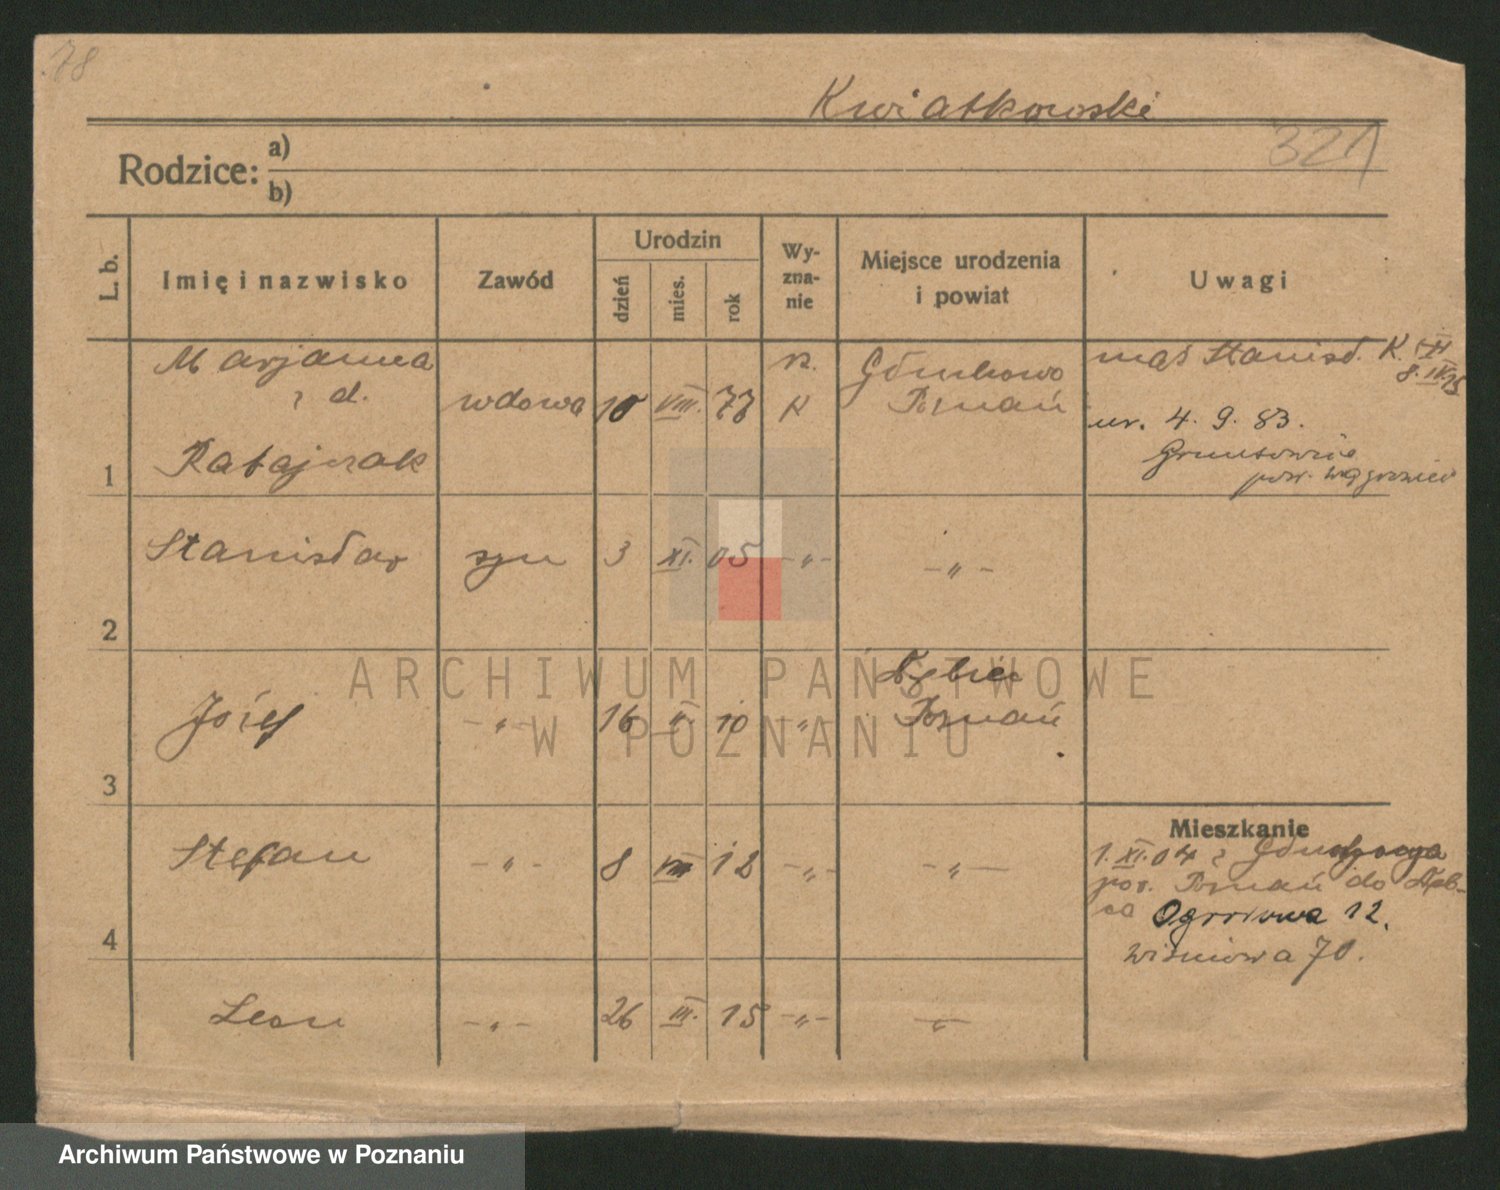 78
Kwiatkowski
321
Rodzice: a)
b)
L. b.
Imię i nazwisko
Zawód
Urodzin
dzień
mies.
rok
Wy-
zna-
nie
Miejsce urodzenia
i powiat
Uwagi
Marjanna
z d.
Ratajczak
wdowa
10
VIII.
77
rz.
K
Głuchowo
Poznań
mąż Stanisł. K.
8. IV. 25
ur. 4. 9. 83.
pow. Wągrowiec
1
Stanisław
syn
3
XI.
05
-„-
-„-
2
Józef
-„-
16
10
„
Dębiec
Poznań
3
Stefan
-„-
8
VIII
12
-„-
-„-
4
Mieszkanie
1. XI. 04 z
pow. Poznań do Dęb-
ca Ogrodowa 12.
Wiśniowa 70.
Leon
-„-
26
III.
15
-„-
-„-
ARCHIWUM PAŃSTWOWE
W POZNANIU
Archiwum Państwowe w Poznaniu